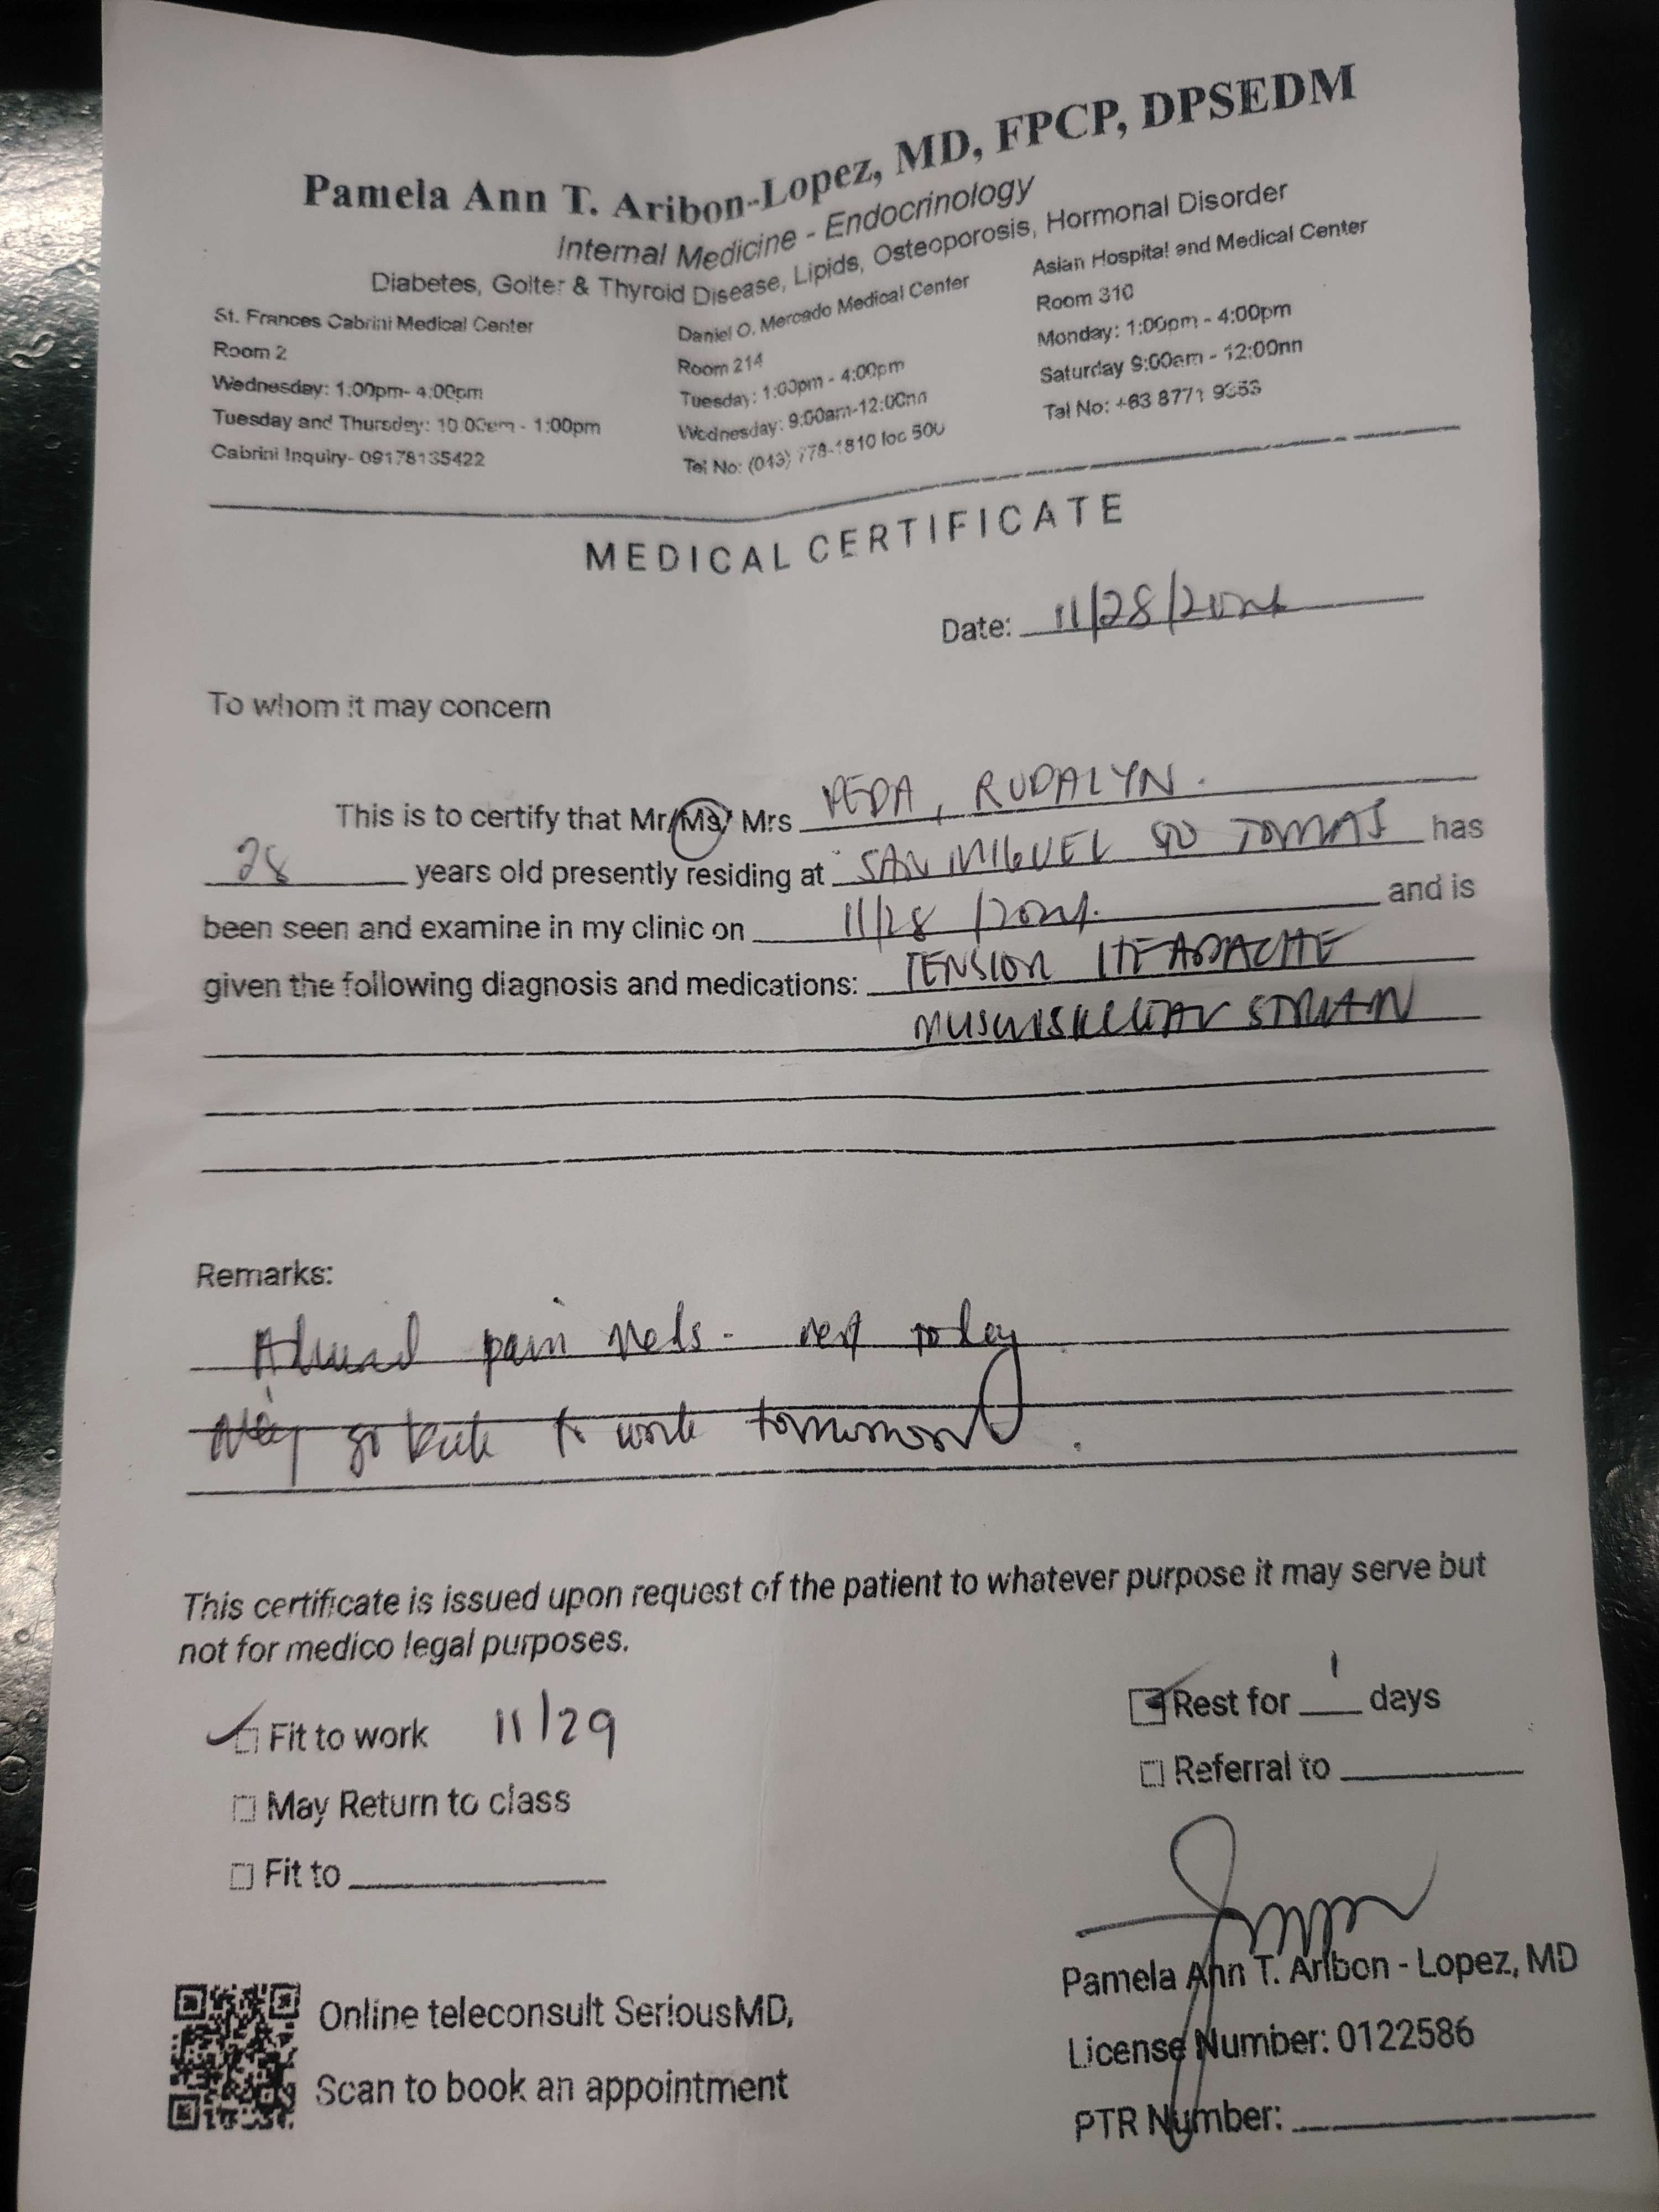 Pamela Ann T. Aribon-Lopez, MD, FPCP, DPSEDM
Internal Medicine - Endocrinology
Diabetes, Goiter & Thyroid Disease, Lipids, Osteoporosis, Hormonal Disorder
St. Frances Cabrini Medical Center
Room 2
Wednesday: 1:00pm- 4:00pm
Tuesday and Thursday: 10:00am - 1:00pm
Cabrini Inquiry- 09178135422
Daniel O. Mercado Medical Center
Room 214
Tuesday: 1:00pm - 4:00pm
Wednesday: 9:00am-12:00nn
Tel No: (043) 778-1810 loc 500
Asian Hospital and Medical Center
Room 310
Monday: 1:00pm - 4:00pm
Saturday 9:00am - 12:00nn
Tel No: +63 8771 9353
MEDICAL CERTIFICATE
Date: 11/28/2024
To whom it may concern
This is to certify that Mr/Ms/ Mrs , RUDALYN.
28 years old presently residing at SAN MIGUEL STO TOMAS has
been seen and examine in my clinic on 11/28/2024. and is
given the following diagnosis and medications: TENSION HEADACHE
MUSCULOSKELETAL STRAIN
Remarks:
Advised pain meds - rest today
May go back to work tomorrow.
This certificate is issued upon request of the patient to whatever purpose it may serve but
not for medico legal purposes.
Fit to work 11/29
May Return to class
Fit to
Rest for 1 days
Referral to
Pamela Ann T. Aribon - Lopez, MD
License Number: 0122586
PTR Number:
Online teleconsult SeriousMD,
Scan to book an appointment